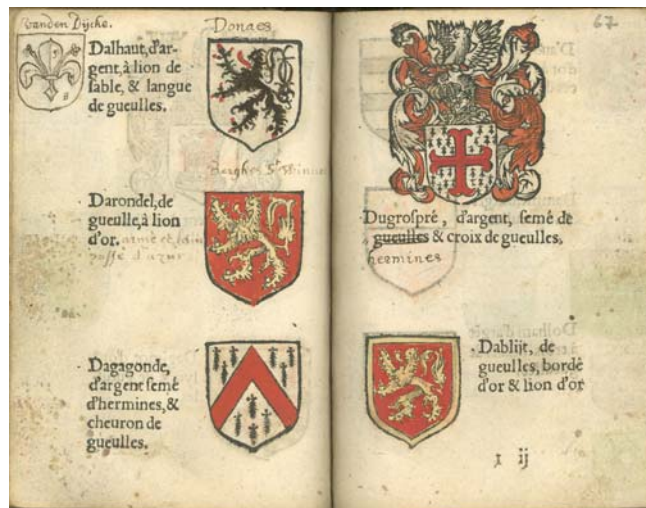 vanden Dijcke.
Donaes
Dalhaut, d'ar-
gent, à lion de
sable, & langue
de gueulles.
Darondel, de
gueulle, à lion
d'or. armé et
d'azur
Dagagonde,
d'argent semé
d'hermines, &
cheuron de
gueulles.
67
Dugrospré, d'argent, semé de
gueulles & croix de gueulles,
hermines
Dablijt, de
gueulles, bordé
d'or & lion d'or
I ij